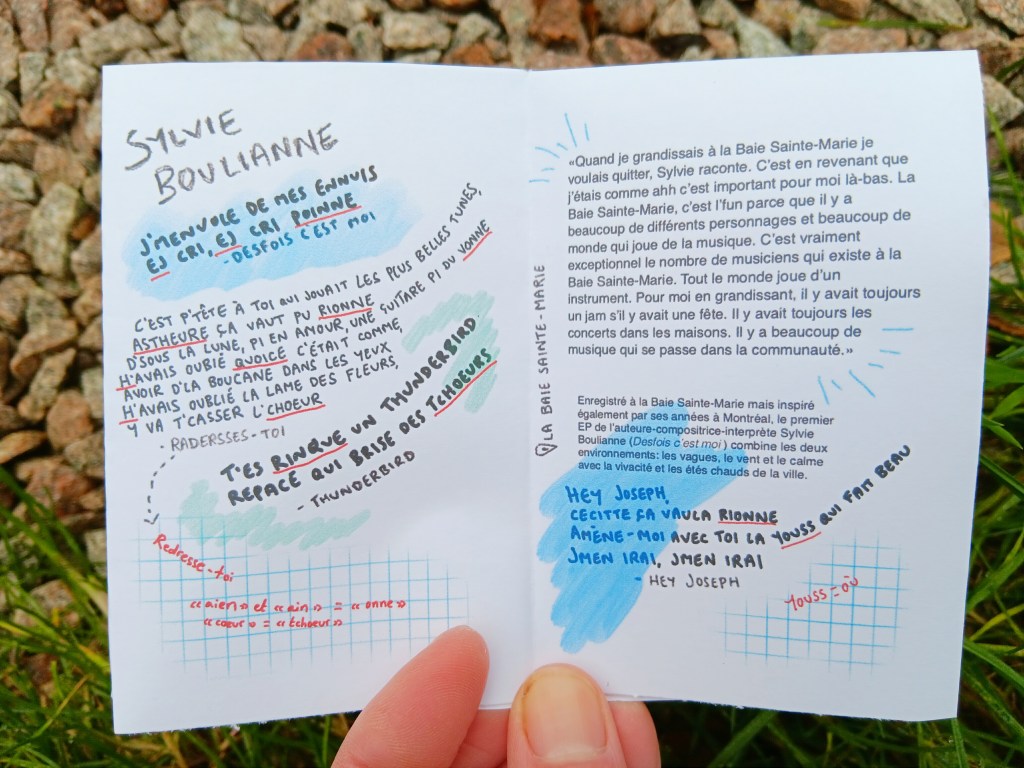 SYLVIE
BOULIANNE
J'MENVOLE DE MES ENNUIS
EJ CRI, EJ CRI POINNE
- DESFOIS C'EST MOI
C'EST P'TÊTE À TOI QUI JOUAIT LES PLUS BELLES TUNES,
ASTHEURE ÇA VAUT PU RIONNE
D'SOUS LA LUNE, PI EN AMOUR, UNE GUITARE PI DU VONNE
H'AVAIS OUBLIÉ QUOICE C'ÉTAIT COMME,
AVOIR D'LA BOUCANE DANS LES YEUX
H'AVAIS OUBLIÉ LA LAME DES FLEURS,
Y VA T'CASSER L'CHOEUR
- RADERSSES-TOI
T'ES RINQUE UN THUNDERBIRD
REPACÉ QUI BRISE DES TCHOEURS
- THUNDERBIRD
Redresse-toi
«aien» et «ain» = «onne»
«cœur» = «tchoeur»
LA BAIE SAINTE-MARIE
«Quand je grandissais à la Baie Sainte-Marie je
voulais quitter, Sylvie raconte. C'est en revenant que
j'étais comme ahh c'est important pour moi là-bas. La
Baie Sainte-Marie, c'est l'fun parce que il y a
beaucoup de différents personnages et beaucoup de
monde qui joue de la musique. C'est vraiment
exceptionnel le nombre de musiciens qui existe à la
Baie Sainte-Marie. Tout le monde joue d'un
instrument. Pour moi en grandissant, il y avait toujours
un jam s'il y avait une fête. Il y avait toujours les
concerts dans les maisons. Il y a beaucoup de
musique qui se passe dans la communauté.»
Enregistré à la Baie Sainte-Marie mais inspiré
également par ses années à Montréal, le premier
EP de l'auteure-compositrice-interprète Sylvie
Boulianne (Desfois c'est moi) combine les deux
environnements: les vagues, le vent et le calme
avec la vivacité et les étés chauds de la ville.
HEY JOSEPH,
CECITTE ÇA VAULA RIONNE
AMÈNE-MOI AVEC TOI LA YOUSS QUI FAIT BEAU
JMEN IRAI, JMEN IRAI
- HEY JOSEPH
Youss = où